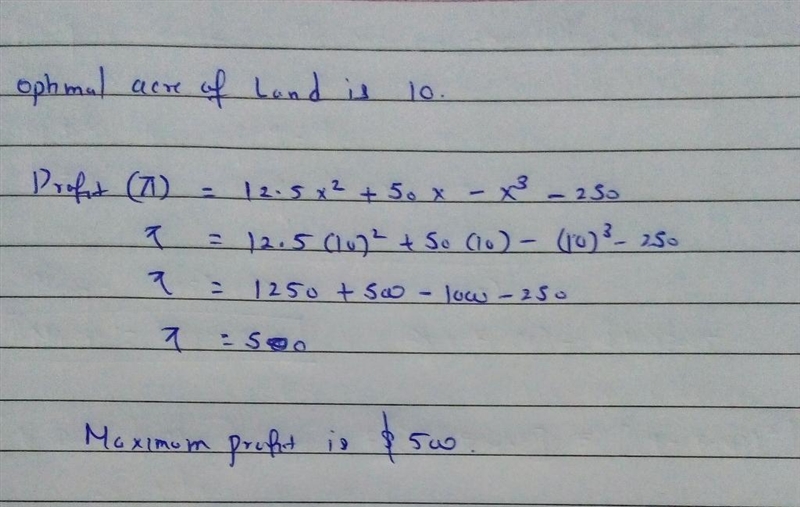 Ophmal acre of Land is 10.
Profit (π) = 12.5x² + 50x - x³ - 250
π = 12.5(10)² + 50(10) - (10)³ - 250
π = 1250 + 500 - 1000 - 250
π = 500
Maximum profit is $500.